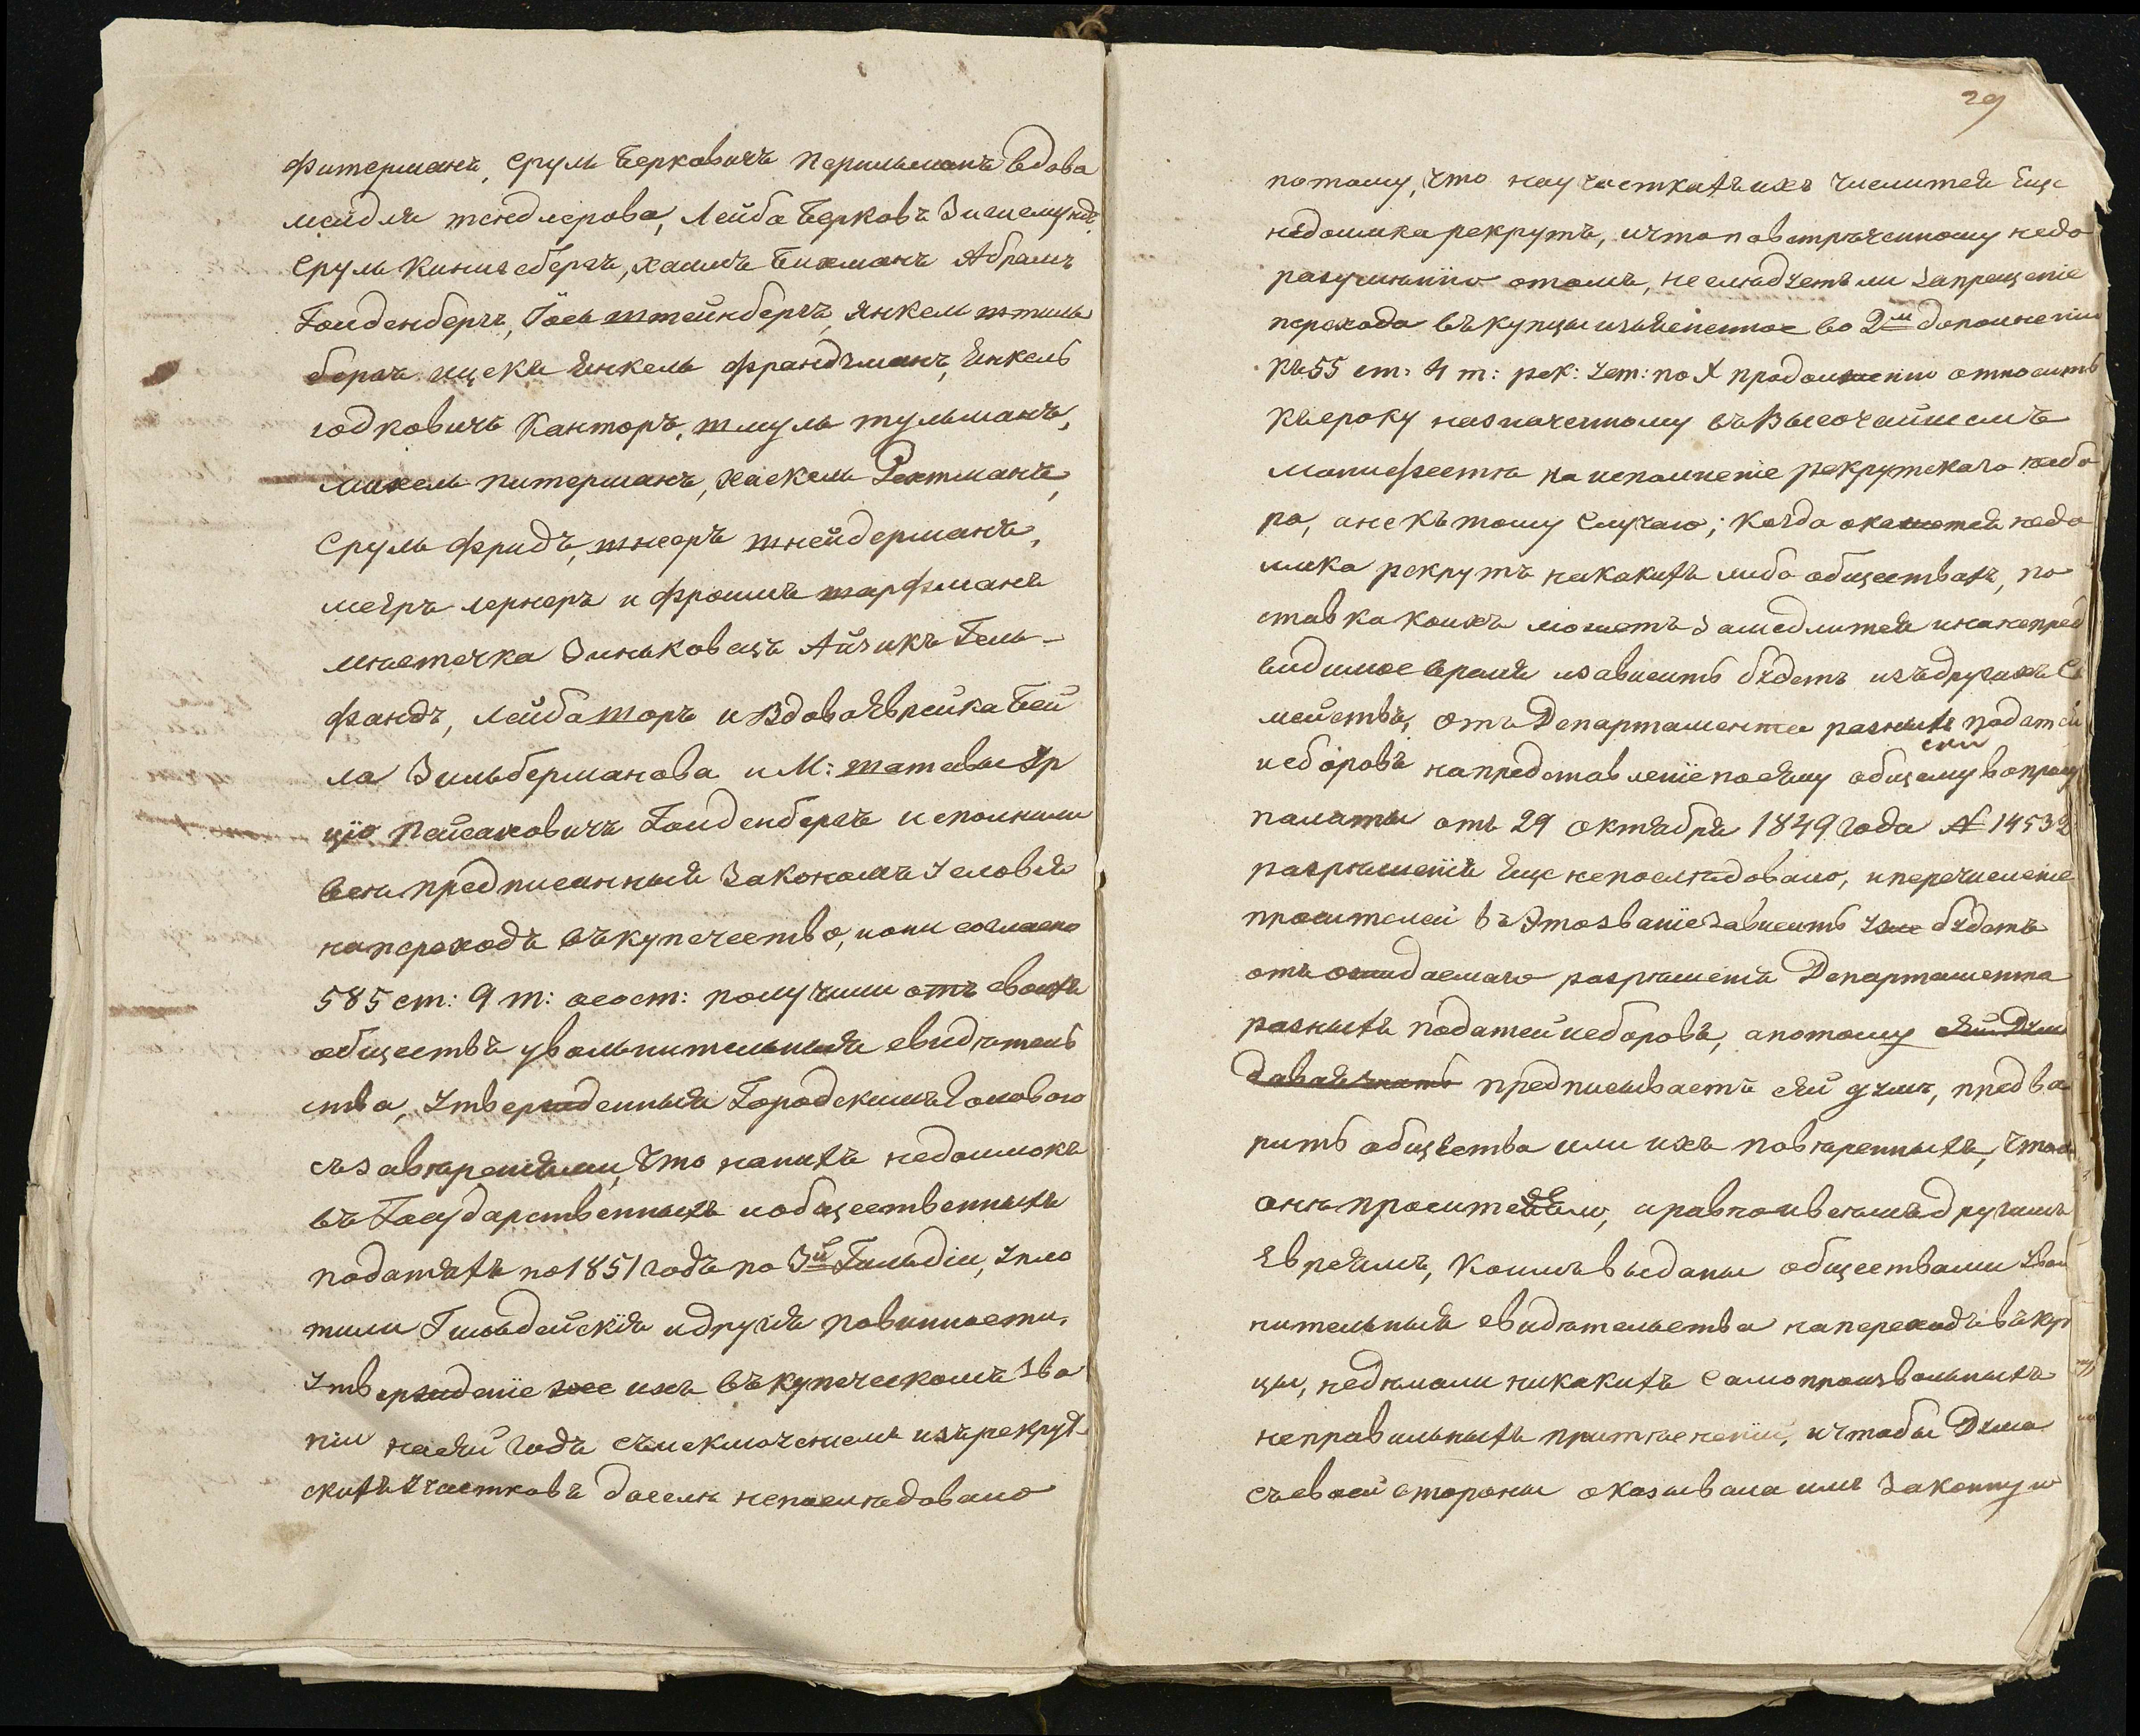 Фитерманъ, Сруль Берковичъ Перильманъ вдова
Мендля тендлерова, Лейба Берковъ Зигемундъ,
Сруль Кинигсбергъ, хаимъ Бихманъ Абрамъ
Гольденбергъ, Іось штейнбергъ, Янкель штиль
бергъ ицека Янкель Франдъманъ, Янкель
іодковичъ Канторъ, шмуль шульманъ,
михель питерманъ, хаскель Рохтманъ,
Сруль Фридъ, шнееръ шнейдерманъ,
меяръ лернеръ и Фроимъ шарфманъ
мѣстечка Зиньковецъ Айзикъ Гель-
фандъ, Лейба шоръ и Вдова Еврейка Бей
ла Зильберманова и М: шатавы Гер
що Пейсаховичъ Гольденбергъ исполнили
всѣ предписанныя закономъ условія
на переходъ въ купечество, и они согласно
585 ст: 9 т: о сост: получили отъ своихъ
обществъ увольнительныя свидѣтель
ства, утвержденныя Городскимъ Головою
съ завѣреніями, что на нихъ недоимокъ
въ Государственныхъ и общественныхъ
податяхъ по 1851 годъ по 3й Гильдіи, упла
тили Гильдейскія и другія повинности.
Утвержденіе же ихъ въ купеческомъ зва
ніи на сей годъ съ исключеніемъ изъ рекрут-
скихъ участковъ доселѣ непослѣдовало
29
потому, что на участкахъ ихъ числится еще
недоимка рекрутъ, и что по встрѣченному недо
разумѣнію о томъ, не слѣдуетъ ли запрещеніе
перехода въ купцы изъясненное во 2мъ дополненіи
къ 55 ст: 4 т: рек: уст: по X продолженію относить
къ сроку назначенному въ Высочайшемъ
Манифестѣ на исполненіе рекрутскаго набо
ра, а не къ тому случаю; когда окажется недо
имка рекрутъ на какихъ либо обществахъ, по
ставка коихъ можетъ замедлиться и на непред
видимое время и зависить будетъ изъ другихъ се
мействъ, отъ Департамента разныхъ податей
и сборовъ на представленіе по сему общему вопросу
сей
палаты отъ 29 октября 1849 года № 14532
разрѣшенія еще не послѣдовало, и перечисленіе
просителей въ это званіе зависить уже будетъ
отъ ожидаемаго разрѣшенія Департамента
разныхъ податей и сборовъ, а потому сей Думѣ
давая знать предписываетъ сей думѣ, предва
рить общества или ихъ повѣренныхъ, чтобы
они просителямъ, а равно и всѣмъ другимъ
Евреямъ, коимъ выданы обществами уволь
нительныя свидѣтельства на переходъ въ куп
цы, не дѣлали никакихъ самопроизвольныхъ
неправильныхъ притѣсненій, и чтобы Дума
съ своей стороны оказывала имъ законную